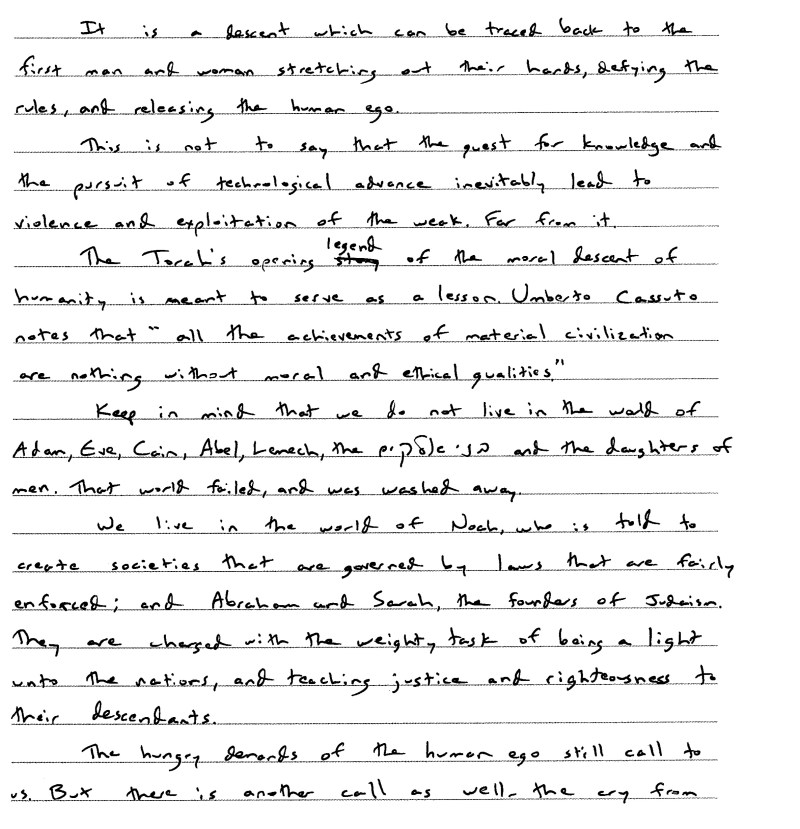 It is a descent which can be traced back to the
first man and woman stretching out their hands, defying the
rules, and releasing the human ego.
This is not to say that the quest for knowledge and
the pursuit of technological advance inevitably lead to
violence and exploitation of the weak. Far from it.
The Torah's opening legend of the moral descent of
humanity is meant to serve as a lesson. Umberto Cassuto
notes that "all the achievements of material civilization
are nothing without moral and ethical qualities."
Keep in mind that we do not live in the world of
Adam, Eve, Cain, Abel, Lemech, the בני אלקים and the daughters of
men. That world failed, and was washed away.
We live in the world of Noah, who is told to
create societies that are governed by laws that are fairly
enforced; and Abraham and Sarah, the founders of Judaism.
They are charged with the weighty task of being a light
unto the nations, and teaching justice and righteousness to
their descendants.
The hungry demands of the human ego still call to
us. But there is another call as well- the cry from